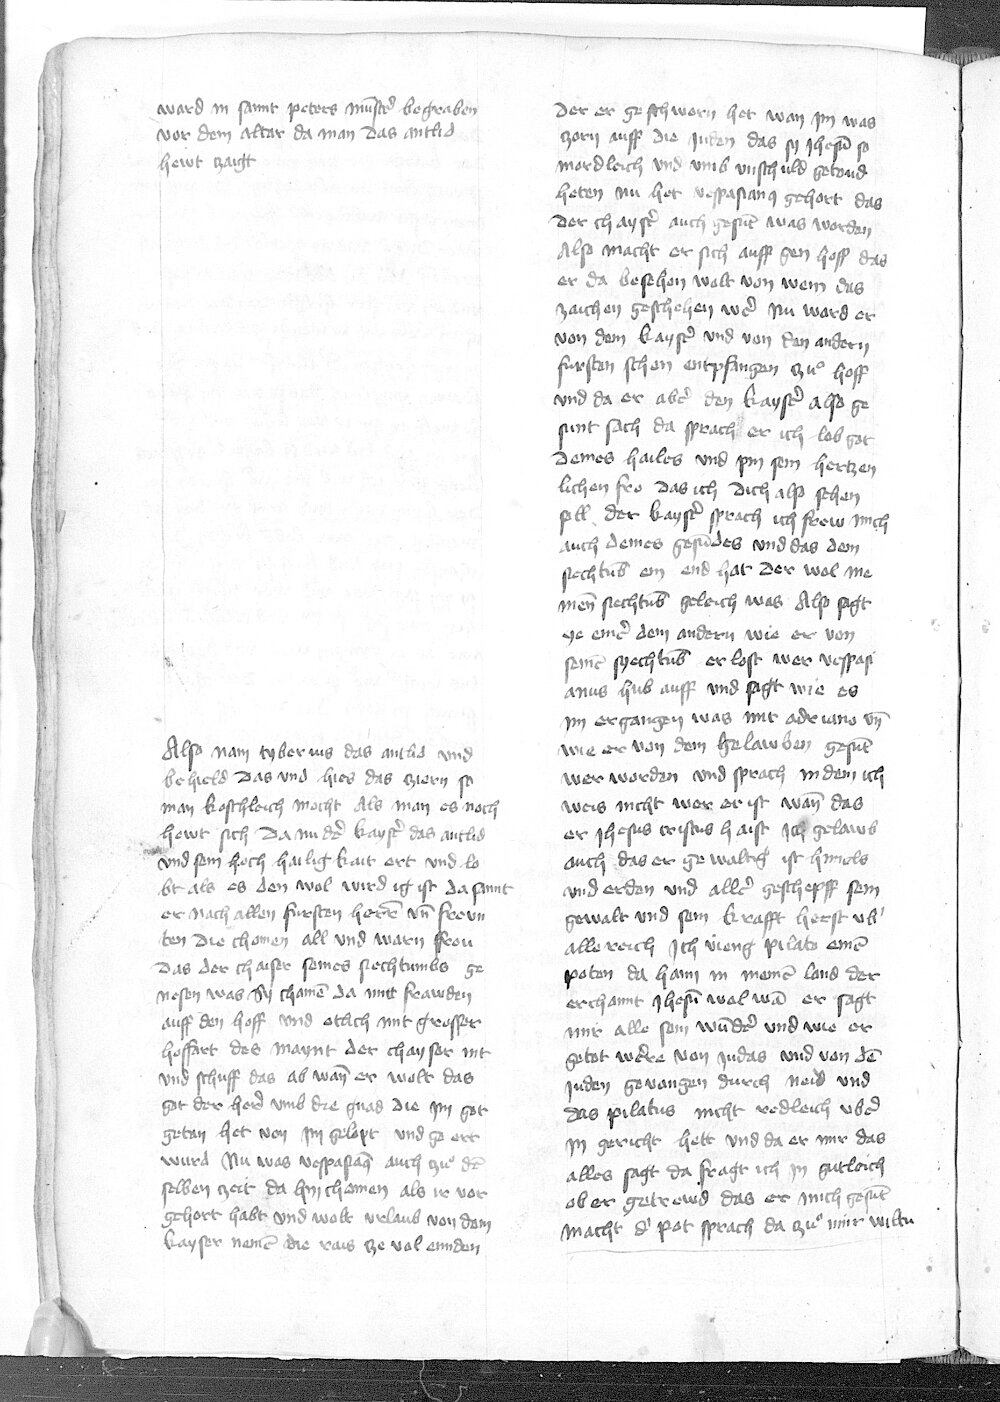 ward in sannt peters munster̃ begraben
vor dem altar da man das antlid
hewt zaigt
Also nam tyberius das antlid und
behield das und hies das ziern so
man kostleich mocht Als man es noch
hewt sich Da nu der̃ kaysr̃ das antlid
und sein hoch hailigkait ert und lo
bt als es den wol wirdig ist da sannt
er nach allen fursten herrẽ vñ frewn
ten die chomen all und warn fro
das der chaiser seines siechtumbs ge
nesen was Sy chamẽ da mit frawden
auff den hoff und etlich mit grosser
hoffart des maynt der chayser nit
und schuff das ab wañ er wolt das
got der her̃ umb die gnad die im got
getan het von im gelopt und ge ert
wurd Nu was vespasiaꝰ auch zuͦ dẽ
selben zeit da hin chomen als ir vor
gehort habt und wolt urlaub von dem
kayser nemẽ die rais ze vol ennden
der er geschworn het wan im was
zorn auff die juden das sy jhesũ so
mordleich und umb unschuld getoud
heten Nu het vespasianꝰ gehort das
der chaysr̃ auch gesũt was worden
Also macht er sich auff gen hoff das
er da besehen wolt von wem das
zaichen geschehen wer̃ Nu ward er
von dem kaysr̃ und von den andern
fursten schon entpfangen zuͦ hoff
und da er aber̃ den kaysr̃ also ge
sunt sach da sprach er ich lob got
deines hailes und pin sein hertzen
lichen fro das ich dich also sehen
soll der kaysr̃ sprach ich frew mich
auch deines gesũdes und das dem
siechtũb ein end hat der wol me
inẽ siechtũb geleich was Also sagt
ye einer̃ dem andern wie er von
seinẽ syechtũb erlost wer vespasi
anus hub auff und sagt wie es
im ergangen was mit adriano vñ
wie er von dem gelawben gesũt
wer worden und sprach in dem ich
weis nicht wer er ist wañ das
er jhesus cristus haist Ich gelawb
auch das er gewaltig ist himels
und erden und aller̃ geschepff sein
gewalt und sein krafft herst ub̃
alle reich Ich vieng pilato einẽ
poten da haim in meinẽ land der
erchannt jhesũ wol wã er sagt
mir alle sein wũder̃ und wie er
getot were von judas und von dẽ
juden gevangen durch neid und
das pilatus nicht redleich uber̃
in gericht hett und da er mir das
alles sagt da fragt ich in gutleich
ob er getrewd das er mich gesũt
macht d̃ pot sprach da zuͦ mir wiltu